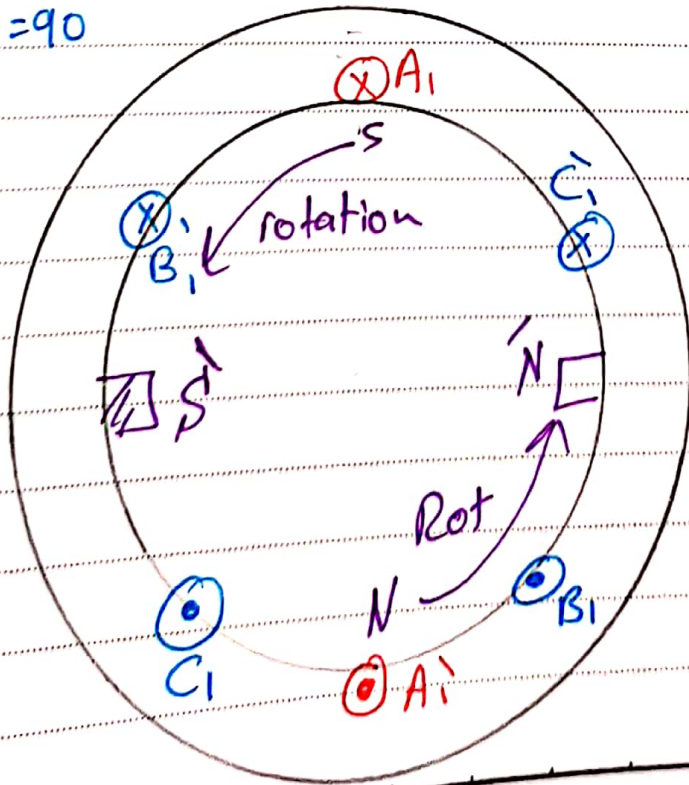 =90
A₁
S
C₁`
rotation
X
X
X
B₁'
N'
S`
Rot
N
B₁
C₁
A₁`